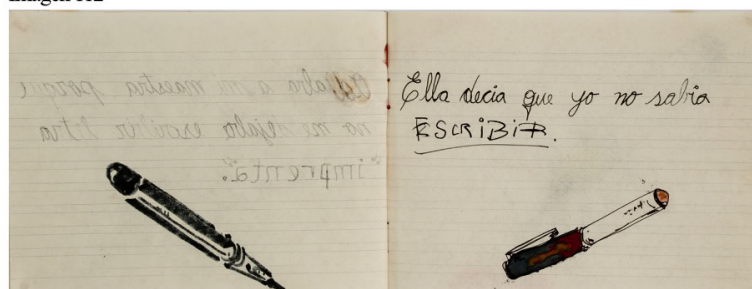 a mi maestra porque
no me dejaba escribir letra
"imprenta".
Ella decia que yo no sabia
ESCRIBIR.